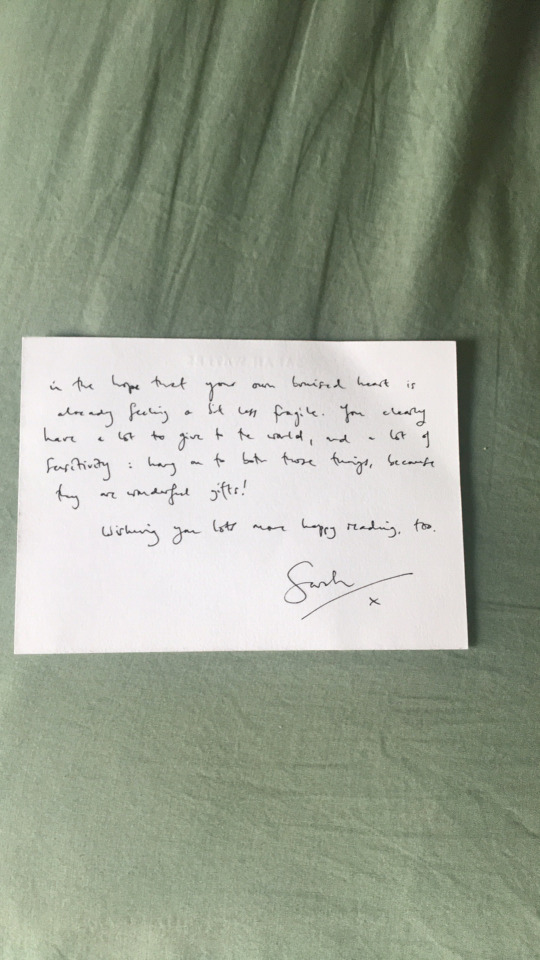 in the hope that your own bruised heart is
already feeling a bit less fragile. You clearly
have a lot to give to the world, and a lot of
sensitivity : hang on to both those things, because
they are wonderful gifts!
Wishing you lots more happy reading, too.
Sarah
x